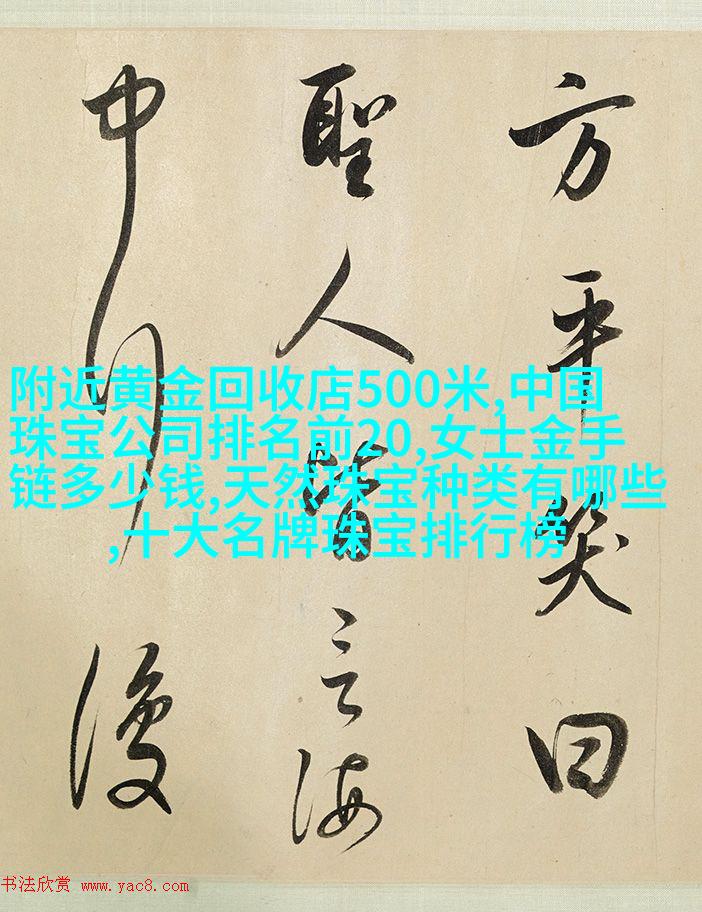 方平笑曰
聖人皆言海
中行復
附近黄金回收店500米,中国
珠宝公司排名前20,女士金手
链多少钱,天然珠宝种类有哪些
,十大名牌珠宝排行榜
书法欣赏 www.yac8.com